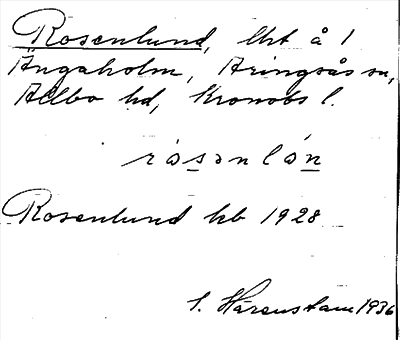 Rosenlund, lht å 1
Ängaholm, Aringsås sn,
Allbo hd, Kronobs l.
rosenlun
Rosenlund kb 1928
S. Härenstam 1936